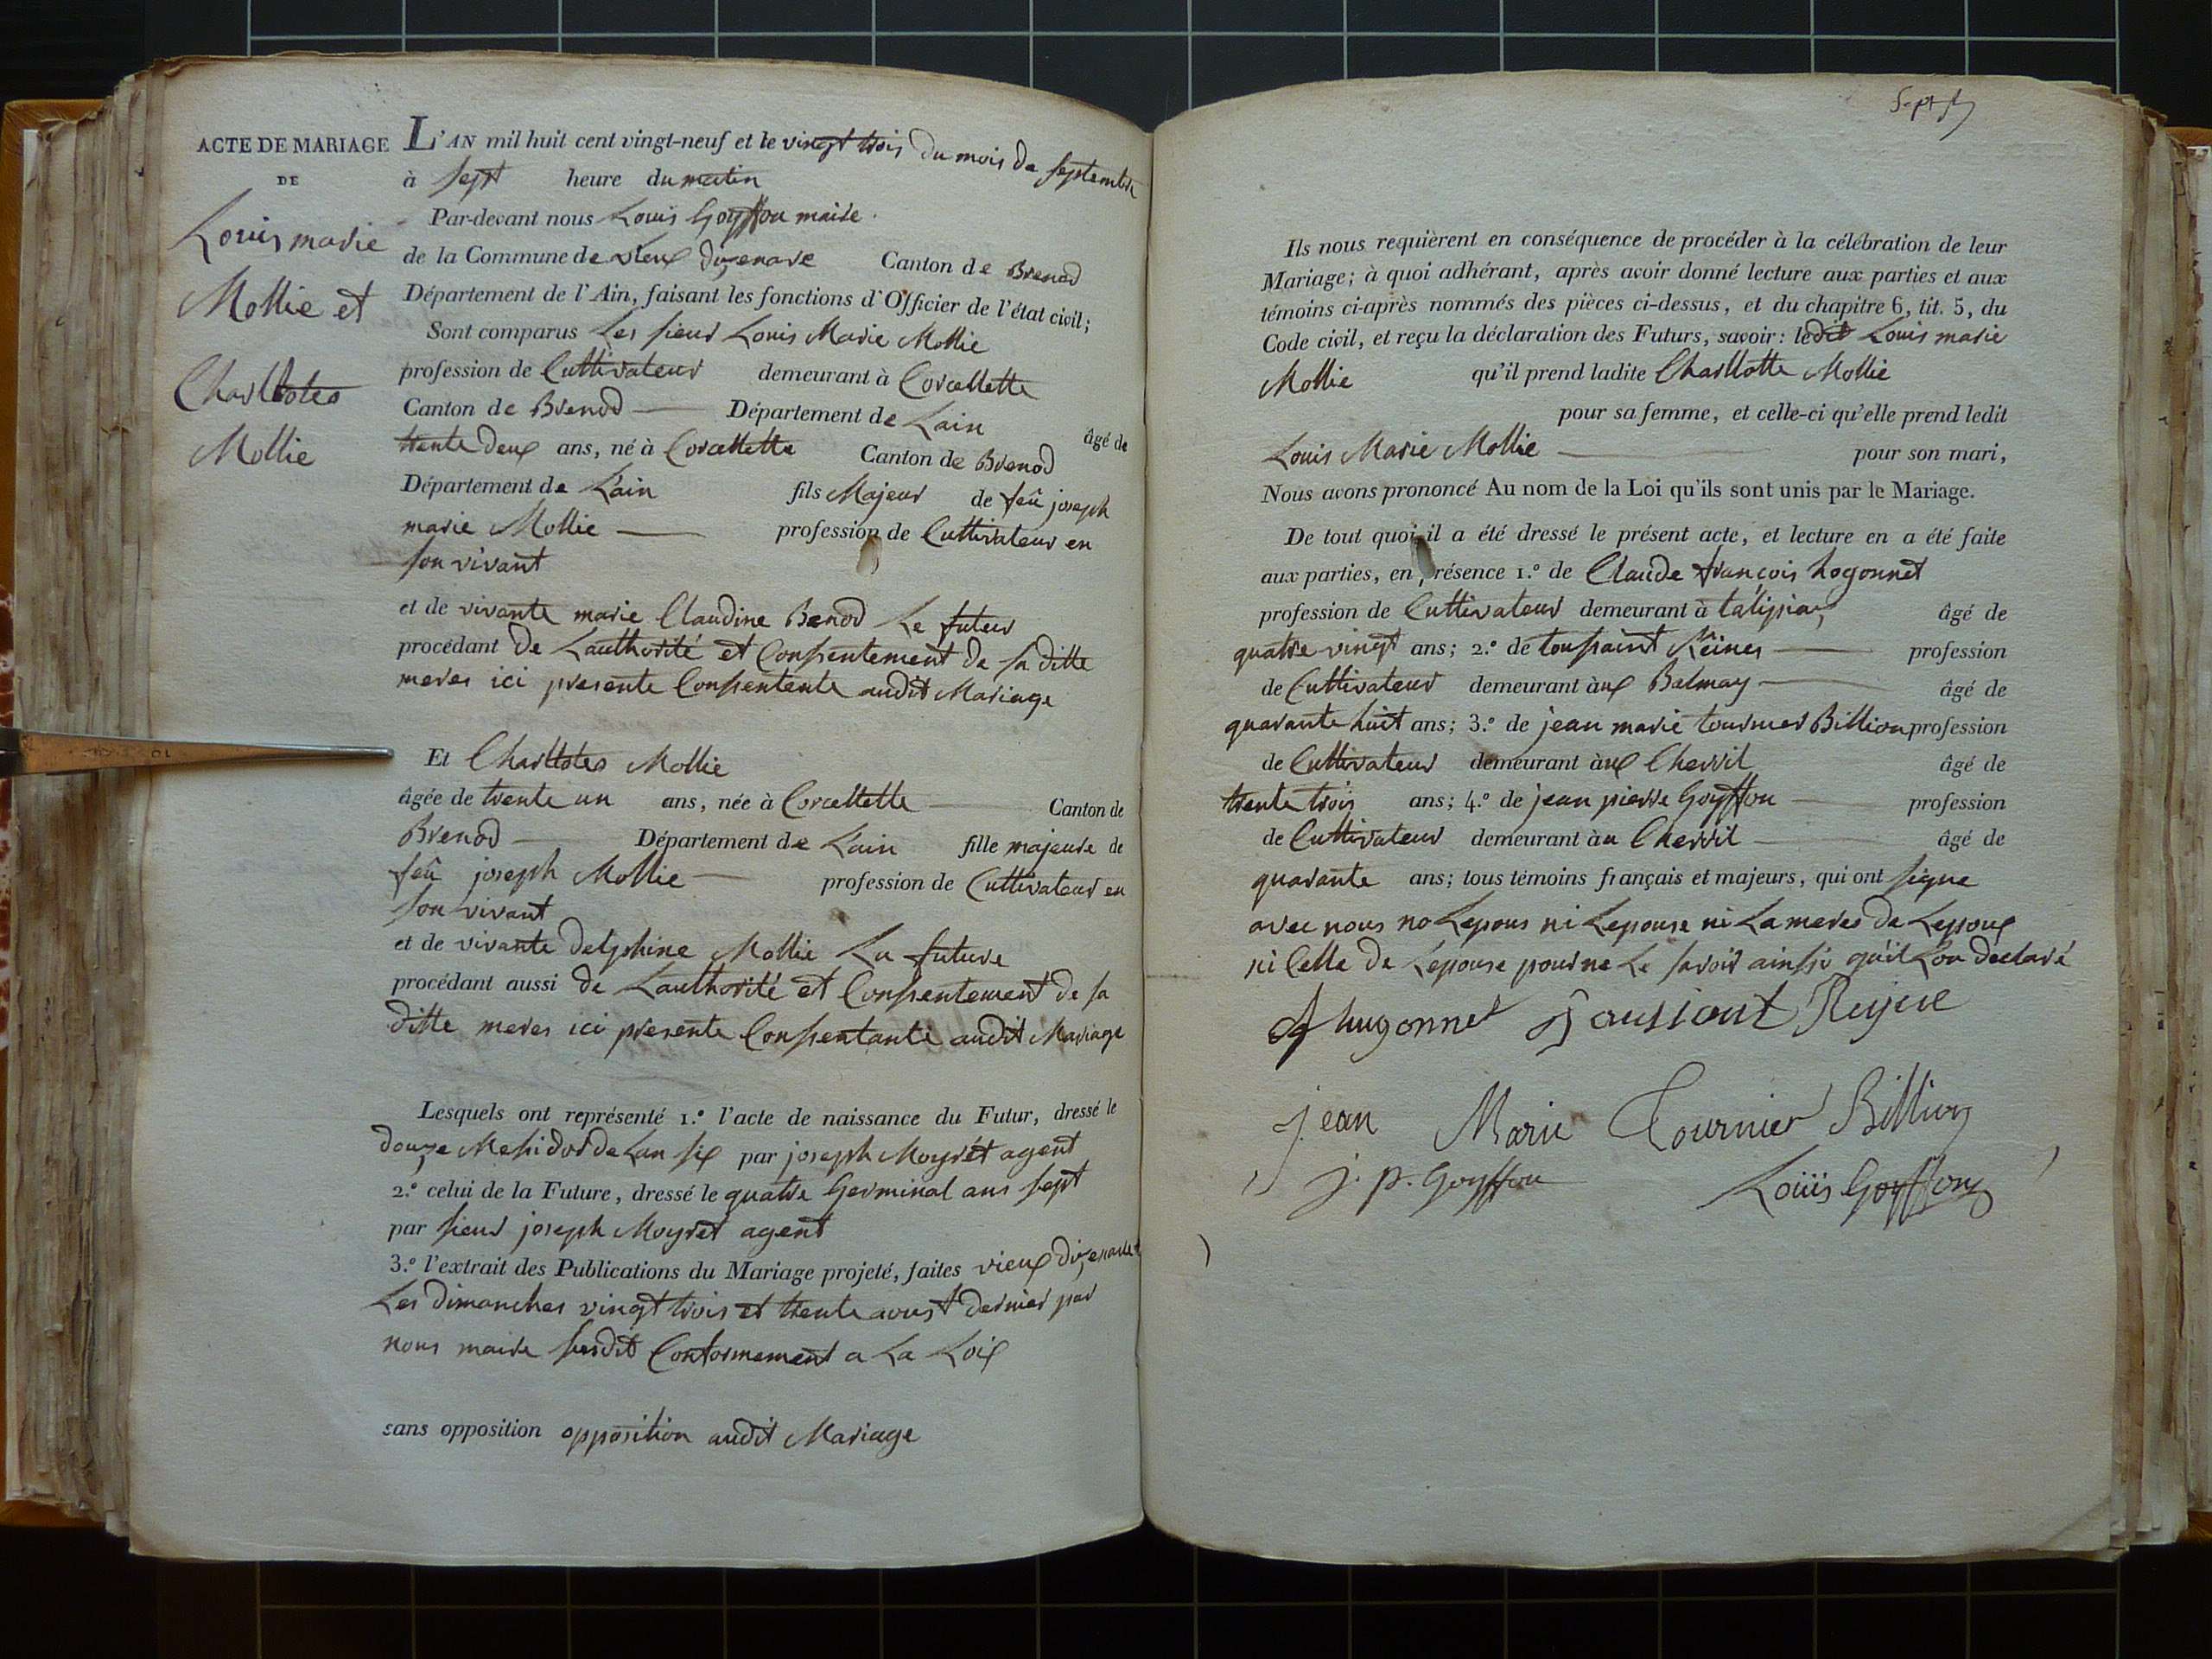 ACTE DE MARIAGE
DE
Louis marie
Mollie et
Charllotes
Mollie
L'AN mil huit cent vingt-neuf et le vingt trois du mois de septembre
à sept heure du matin
Par-devant nous Louis Goyffon maire.
de la Commune de vieux dizenave Canton de Brenod
Département de l'Ain, faisant les fonctions d'Officier de l'état civil;
Sont comparus Les sieur Louis Marie Mollie
profession de Cultivateur demeurant à Corcellette
Canton de Brenod Département de Lain âgé de
trente deux ans, né à Corcellette Canton de Brenod
Département de Lain fils Majeur de feû joseph
marie Mollie profession de Cultivateur en
son vivant
et de vivante marie Claudine Benod Le futeur
procédant De Lauthorité et Consentement De sa ditte
meres ici presente Consentente audit Mariage
Et Charllotes Mollie
âgée de trente un ans, née à Corcellette Canton de
Brenod Département de Lain fille majeure de
feû joseph Mollie profession de Cultivateur en
son vivant
et de vivante delphine Mollie La future
procédant aussi de Lauthorité et Consentement de sa
ditte meres ici presente Consentante audit Mariage
Lesquels ont représenté 1.º l'acte de naissance du Futur, dressé le
douze Messidor de Lan six par joseph Moyret agent
2.º celui de la Future, dressé le quatre Germinal ans sept
par sieur joseph Moyret agent
3.º l'extrait des Publications du Mariage projeté, faites vieux dizenave
Les dimanches vingt trois et trente aoust dernier par
nous maire susdit Conformement a La Loix
sans opposition opposition audit Mariage
Ils nous requièrent en conséquence de procéder à la célébration de leur
Mariage; à quoi adhérant, après avoir donné lecture aux parties et aux
témoins ci-après nommés des pièces ci-dessus, et du chapitre 6, tit. 5, du
Code civil, et reçu la déclaration des Futurs, savoir: ledit Louis marie
Mollie qu'il prend ladite Charllotte Mollie
pour sa femme, et celle-ci qu'elle prend ledit
Louis Marie Mollie pour son mari,
Nous avons prononcé Au nom de la Loi qu'ils sont unis par le Mariage.
De tout quoi il a été dressé le présent acte, et lecture en a été faite
aux parties, en présence 1.º de Claude françois hogonnet
profession de Cultivateur demeurant à talipiaz âgé de
quatre vingt ans; 2.º de toussaint Reines profession
de Cultivateur demeurant àux Balmay âgé de
quarante huit ans; 3.º de jean marie tournier Billion profession
de Cultivateur demeurant àux Chervil âgé de
trente trois ans; 4.º de jean pierre Goyffon profession
de Cultivateur demeurant àu Chervil âgé de
quarante ans; tous témoins français et majeurs, qui ont signe
avec nous no Lepous ni Lepouse ni La meres de Lepoux
ni Celle de Lépouse pour ne Le savoir ainssi quil Lon déclaré
hugonnet
jean Marie Tournier Billion
j. p. Goyffon Louïs Goyffon